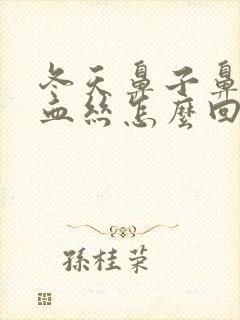 冬天鼻子鼻
血絲怎麼回
孫桂荣